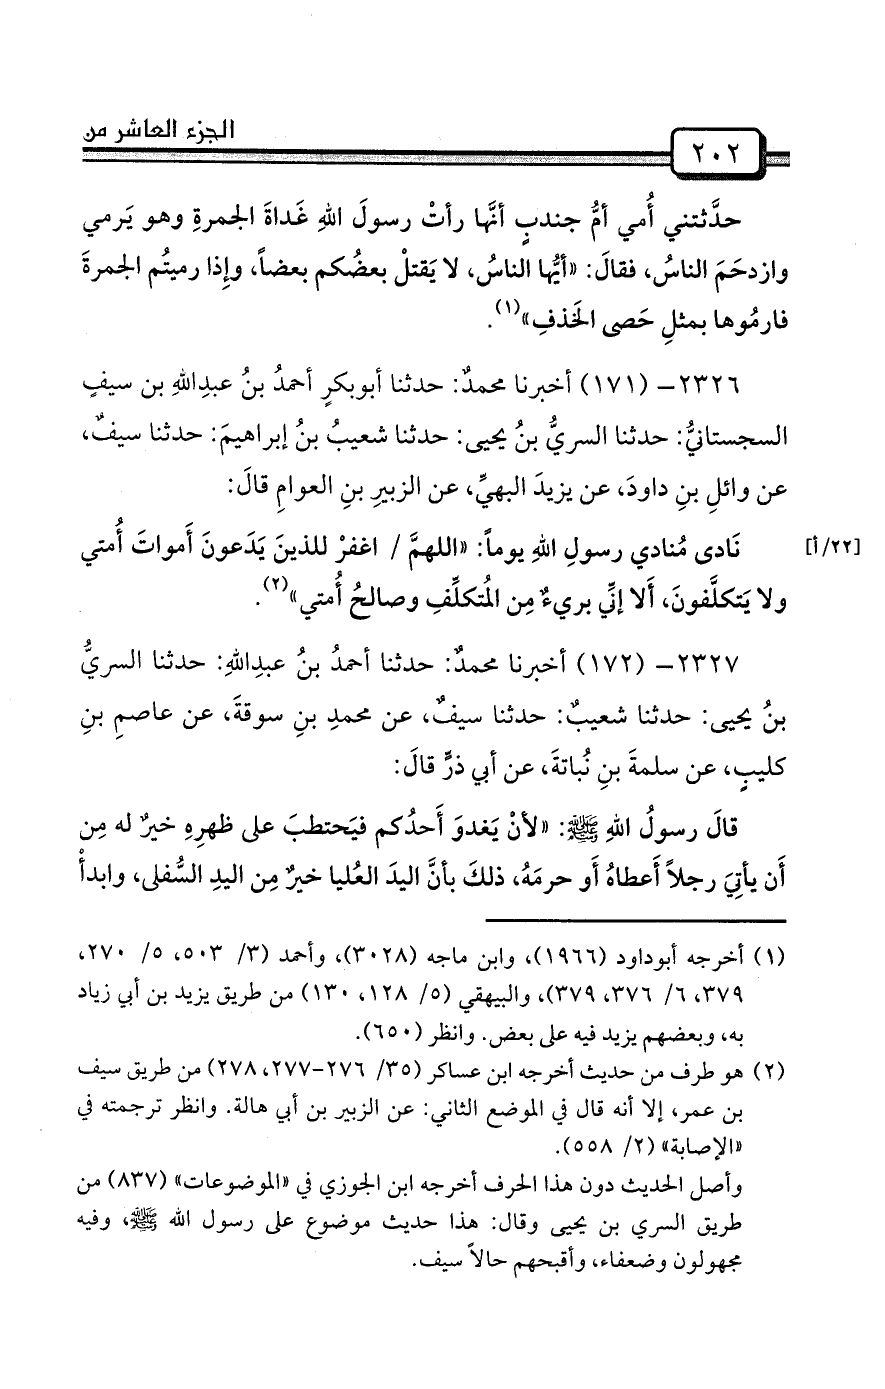 الجزء العاشر من
٢٠٢
حدَّثتني أُمي أمُّ جندبٍ أنَّها رأتْ رسولَ اللهِ غَداةَ الجمرةِ وهو يَرمي
وازدحَمَ الناسُ، فقالَ: «أيُّها الناسُ، لا يَقتلْ بعضُكم بعضاً، وإِذا رميتُم الجمرةَ
فارمُوها بمثلِ حَصى الخَذفِ»(١).
٢٣٢٦- (١٧١) أخبرنا محمدٌ: حدثنا أبوبكرٍ أحمدُ بنُ عبدِاللهِ بن سيفٍ
السجستانيُّ: حدثنا السريُّ بنُ يحيى: حدثنا شعيبُ بنُ إبراهيمَ: حدثنا سيفٌ،
عن وائلِ بنِ داودَ، عن يزيدَ البهيِّ، عن الزبيرِ بنِ العوامِ قالَ:
نَادى مُنادي رسولِ اللهِ يوماً: «اللهمَّ / اغفرْ للذينَ يَدَعونَ أَمواتَ أُمتي
[٢٢/أ]
ولا يَتكلَّفونَ، أَلا إنِّي بريءٌ مِن المُتكلِّفِ وصالحُ أُمتي»(٢).
٢٣٢٧- (١٧٢) أخبرنا محمدٌ: حدثنا أحمدُ بنُ عبدِاللهِ: حدثنا السريُّ
بنُ يحيى: حدثنا شعيبٌ: حدثنا سيفٌ، عن محمدِ بنِ سوقةَ، عن عاصمِ بنِ
كليبٍ، عن سلمةَ بنِ نُباتةَ، عن أبي ذرٍّ قالَ:
قالَ رسولُ اللهِ ﷺ: «لأنْ يَغدوَ أَحدُكم فيَحتطبَ على ظهرِهِ خيرٌ له مِن
أَن يأتيَ رجلاً أَعطاهُ أَو حرمَهُ، ذلكَ بأنَّ اليدَ العُليا خيرٌ مِن اليدِ السُّفلى، وابدأْ
(١) أخرجه أبوداود (١٩٦٦)، وابن ماجه (٣٠٢٨)، وأحمد (٣/ ٥٠٣، ٥/ ٢٧٠،
٣٧٩، ٦/ ٣٧٦، ٣٧٩)، والبيهقي (٥/ ١٢٨، ١٣٠) من طريق يزيد بن أبي زياد
به، وبعضهم يزيد فيه على بعض. وانظر (٦٥٠).
(٢) هو طرف من حديث أخرجه ابن عساكر (٣٥/ ٢٧٦-٢٧٧، ٢٧٨) من طريق سيف
بن عمر، إلا أنه قال في الموضع الثاني: عن الزبير بن أبي هالة. وانظر ترجمته في
«الإصابة» (٢/ ٥٥٨).
وأصل الحديث دون هذا الحرف أخرجه ابن الجوزي في «الموضوعات» (٨٣٧) من
طريق السري بن يحيى وقال: هذا حديث موضوع على رسول الله ﷺ، وفيه
مجهولون وضعفاء، وأقبحهم حالاً سيف.